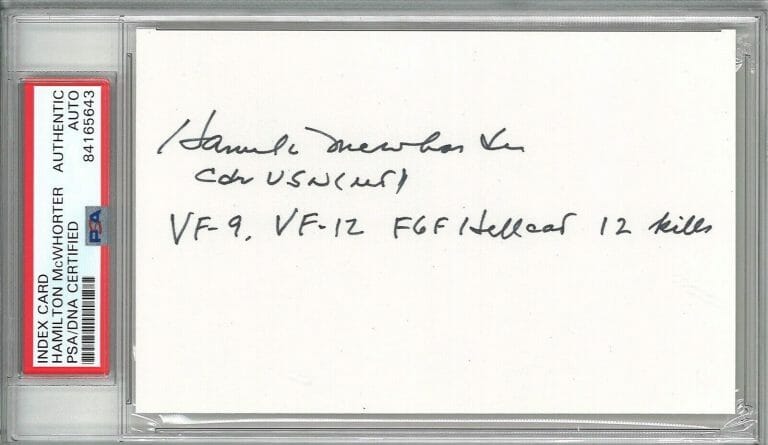 INDEX CARD
HAMILTON McWHORTER
PSA/DNA CERTIFIED
AUTHENTIC
AUTO
84165643
PSA
Hamilton McWhorter
Cdr USN (ret)
VF-9, VF-12 F6F Hellcat 12 kills